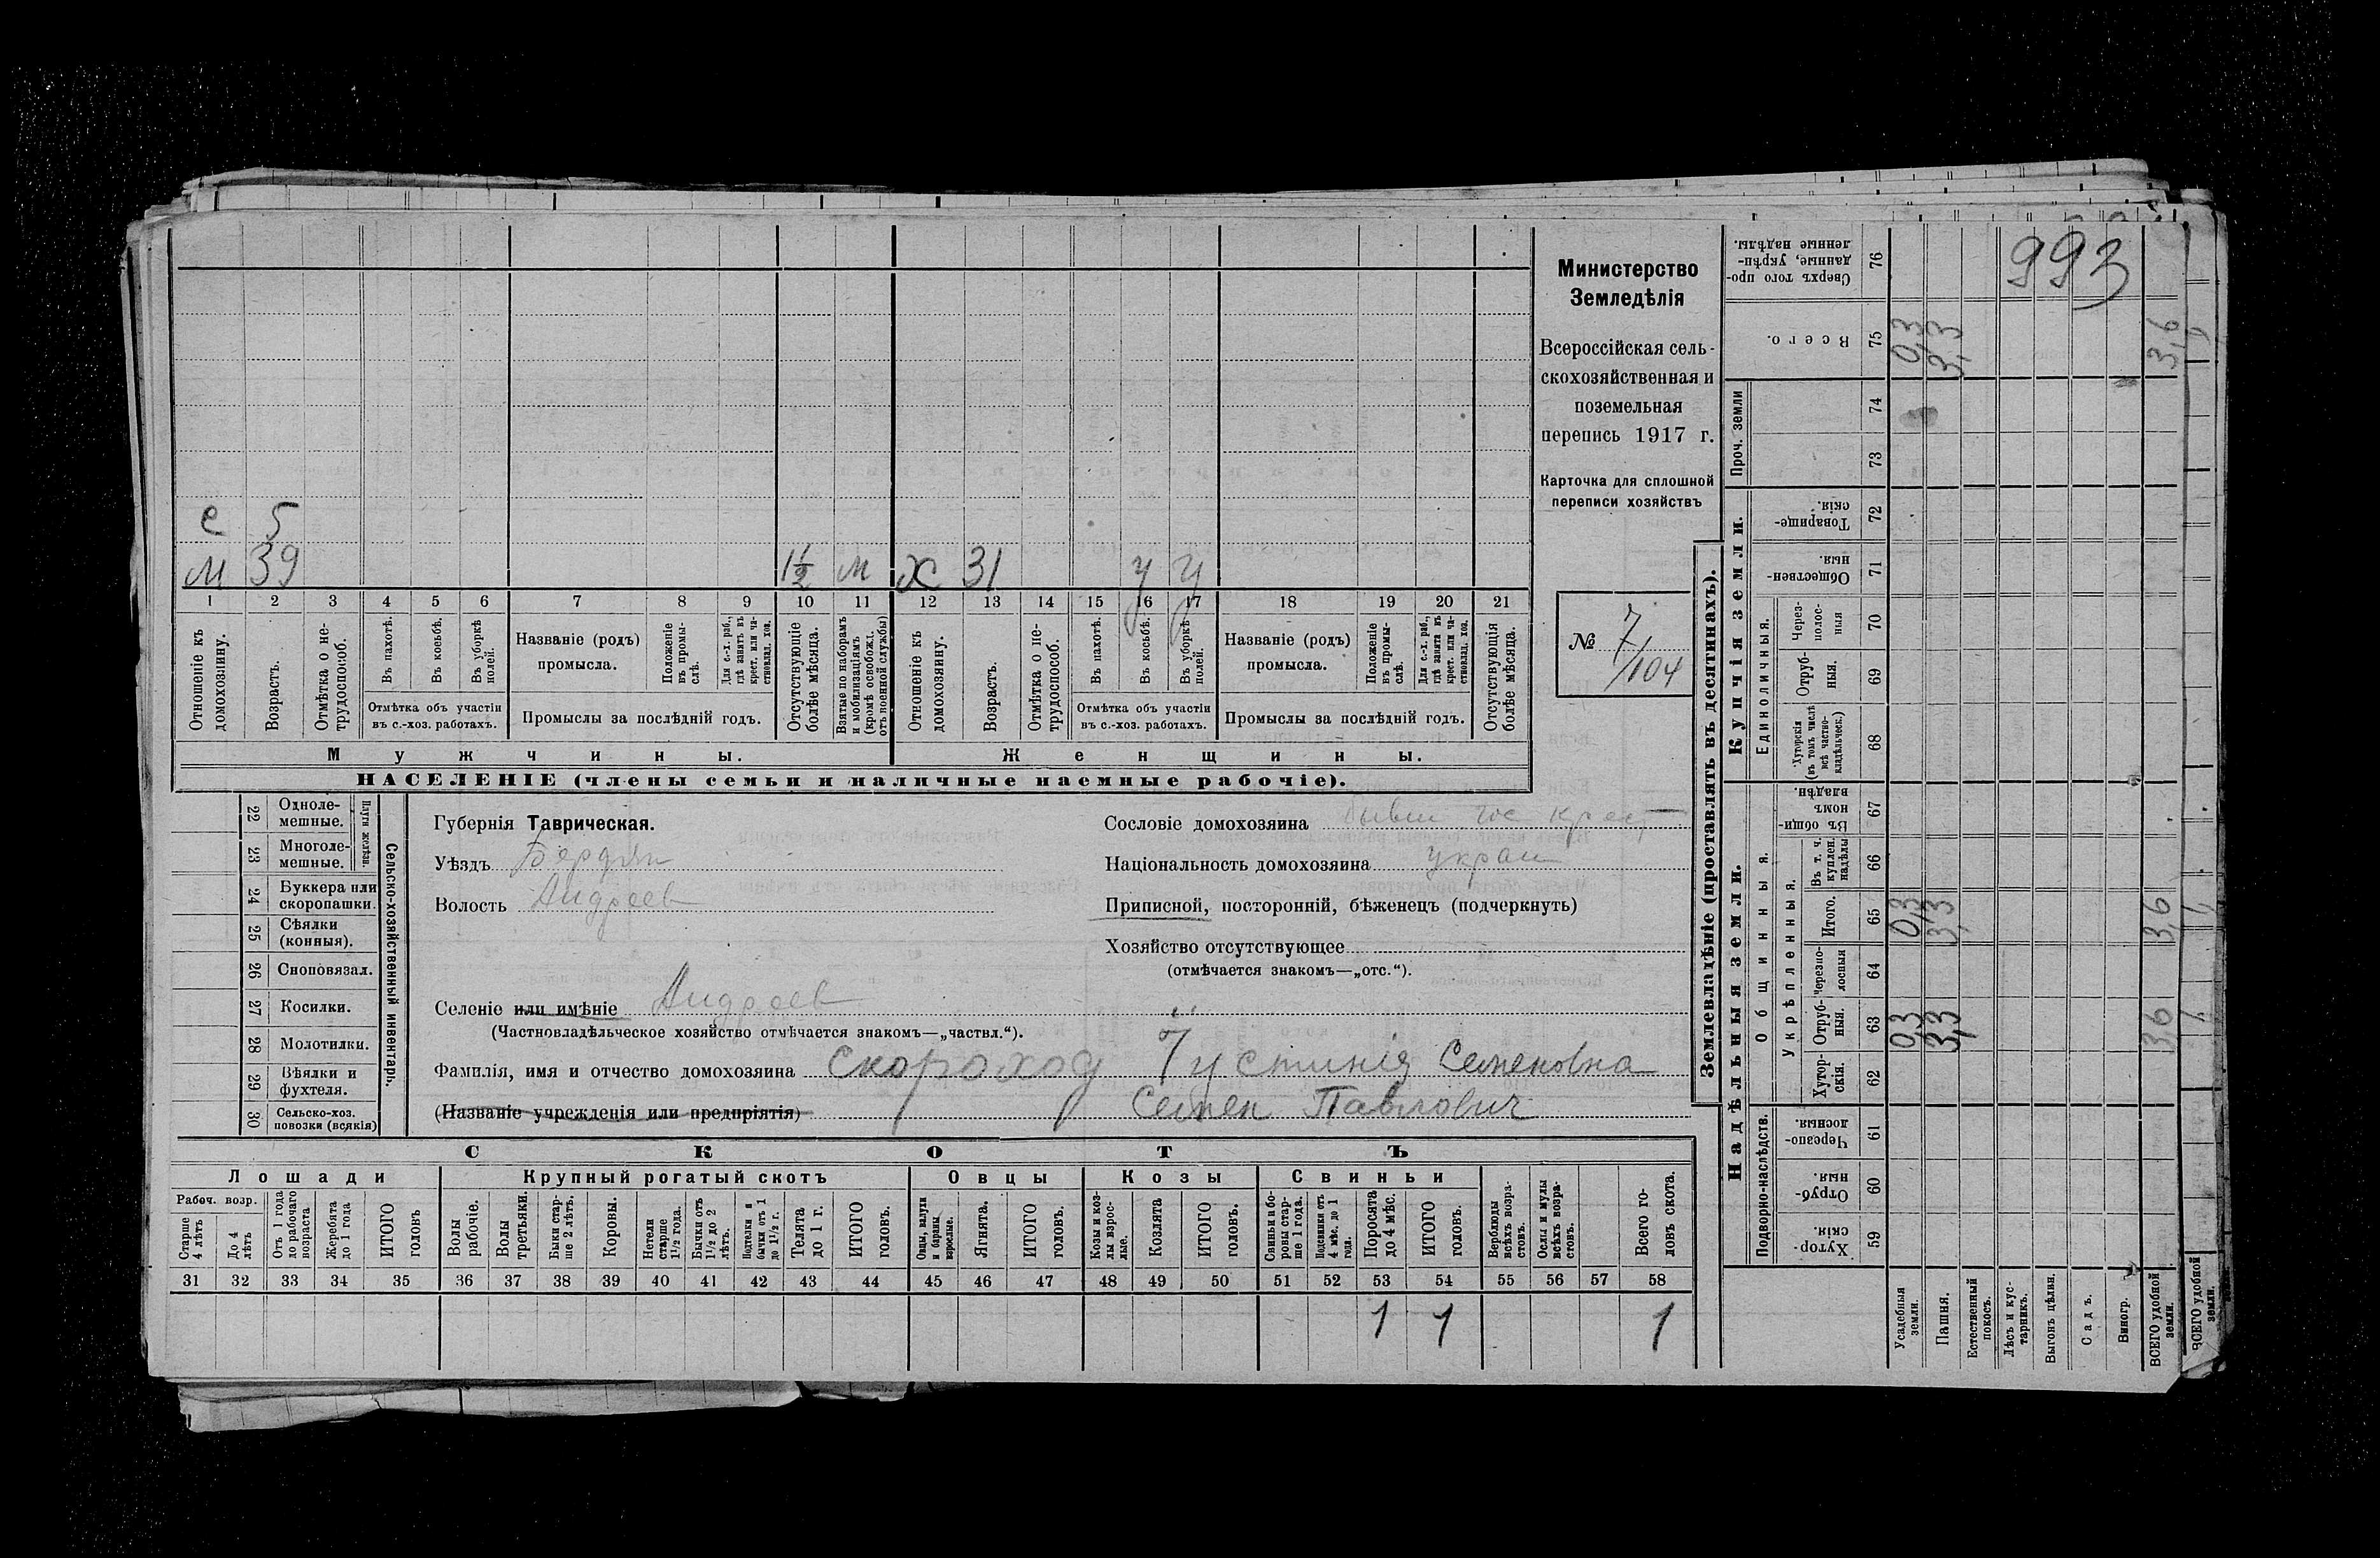 993
Министерство
Земледѣлія
Всероссійская сель-
скохозяйственная и
поземельная
перепись 1917 г.
Карточка для сплошной
переписи хозяйствъ
№ 7/104
с 5
м 39 1½ м х 31 у у
1 2 3 4 5 6 7 8 9 10 11 12 13 14 15 16 17 18 19 20 21
Отношеніе къ домохозяину.
Возрастъ.
Отмѣтка о не-трудоспособ.
Въ пахотѣ.
Въ косьбѣ.
Въ уборкѣ полей.
Отмѣтка объ участіи
въ с.-хоз. работахъ.
Названіе (родъ)
промысла.
Положеніе въ промы-слѣ.
Для с.-х. раб., гдѣ занятъ въ крест. или ча-стновлад. хоз.
Промыслы за послѣдній годъ.
Отсутствующіе болѣе мѣсяца.
Взятые по наборамъ и мобилизаціямъ (кромѣ освобожд. отъ военной службы)
Отношеніе къ домохозяину.
Возрастъ.
Отмѣтка о не-трудоспособ.
Въ пахотѣ.
Въ косьбѣ.
Въ уборкѣ полей.
Отмѣтка объ участіи
въ с.-хоз. работахъ.
Названіе (родъ)
промысла.
Положеніе въ промы-слѣ.
Для с.-х. раб., гдѣ занята въ крест. или ча-стновлад. хоз.
Промыслы за послѣдній годъ.
Отсутствующія болѣе мѣсяца.
Мужчины. Женщины.
НАСЕЛЕНІЕ (члены семьи и наличные наемные рабочіе).
Сельско-хозяйственный инвентарь.
Плуги желѣзн.
22 Одноле-мешные.
23 Многоле-мешные.
24 Буккера или скоропашки.
25 Сѣялки (конныя).
26 Сноповязал.
27 Косилки.
28 Молотилки.
29 Вѣялки и фухтеля.
30 Сельско-хоз. повозки (всякія)
Губернія Таврическая.
Уѣздъ Бердян
Волость Андреев
Селеніе или имѣніе Андреев
(Частновладѣльческое хозяйство отмѣчается знакомъ—„частвл.“).
Фамилія, имя и отчество домохозяина Скороход Устинія Семеновна
(Названіе учрежденія или предпріятія) Семен Павлович
Сословіе домохозяина бывш гос крест
Національность домохозяина украин
Приписной, посторонній, бѣженецъ (подчеркнуть)
Хозяйство отсутствующее
(отмѣчается знакомъ—„отс.“).
СКОТЪ
Лошади Крупный рогатый скотъ Овцы Козы Свиньи
Рабоч. возр.
Старше 4 лѣтъ
До 4 лѣтъ
Отъ 1 года до рабочаго возраста
Жеребята до 1 года
ИТОГО головъ
Волы рабочіе.
Волы третьяки.
Быки стар-ше 2 лѣтъ.
Коровы.
Нетели старше 1½ года.
Бычки отъ 1½ до 2 лѣтъ.
Подтелки и бычки отъ 1 до 1½ г.
Телята до 1 г.
ИТОГО головъ.
Овцы, валухи и бараны взрослые.
Ягнята.
ИТОГО головъ.
Козы и коз-лы взрос-лые.
Козлята
ИТОГО головъ.
Свиньи и бо-ровы стар-ше 1 года.
Подсвинки отъ 4 мѣс. до 1 года.
Поросята до 4 мѣс.
ИТОГО головъ.
Верблюды всѣхъ возра-стовъ.
Ослы и мулы всѣхъ возра-стовъ.
Всего го-ловъ скота.
31 32 33 34 35 36 37 38 39 40 41 42 43 44 45 46 47 48 49 50 51 52 53 54 55 56 57 58
1 1 1
Землевладѣніе (проставлять въ десятинахъ).
Надѣльныя земли. Купчія земли. Проч. земли
Подворно-наслѣдств.
Общинныя.
Укрѣпленныя.
Единоличныя.
Хутор-скія. 59
Отруб-ныя. 60
Черезпо-лосныя. 61
Хутор-скія. 62
Отруб-ныя. 63 0,3 3,3 3,6
Черезпо-лосныя 64
Итого. 65 0,3 3,3 3,6
Въ т. ч. куплен. надѣлы 66
Въ общи-номъ владѣн. 67
Хуторскія (въ томъ числѣ всѣ частно-владѣльческ.) 68
Отруб-ныя. 69
Через-полос-ныя 70
Обществен-ныя. 71
Товарище-скія. 72
73
74
Всего. 75 0,3 3,3 3,6
Сверхъ того про-данные, укрѣп-ленные надѣлы. 76
Усадебныя земли.
Пашня.
Естественный покосъ.
Лѣсъ и кус-тарникъ.
Выгонъ цѣлин.
Садъ.
Виногр.
ВСЕГО удобной земли.
ВСЕГО удобной земли.